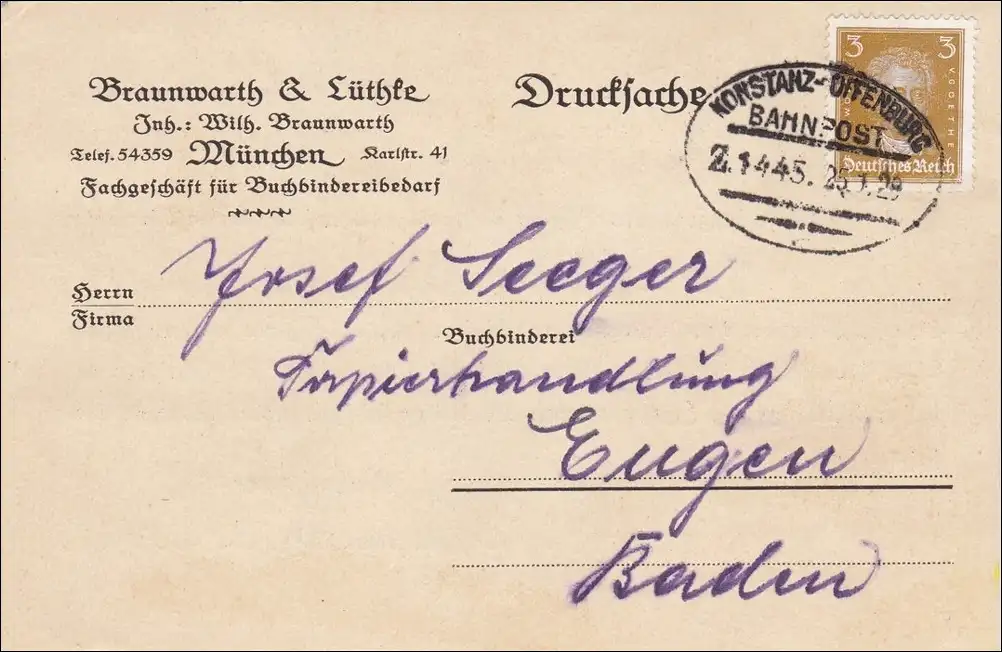 Braunwarth & Lüthke
Inh.: Wilh. Braunwarth
Telef. 54359 München Karlstr. 41
Fachgeschäft für Buchbindereibedarf
Drucksache
3 3
V. GOETHE
Deutsches Reich
KONSTANZ-OFFENBURG
BAHNPOST
Z.1445. 25.1.29
Herrn
Firma
Josef Seeger
Buchbinderei
Papierhandlung
Engen
Baden